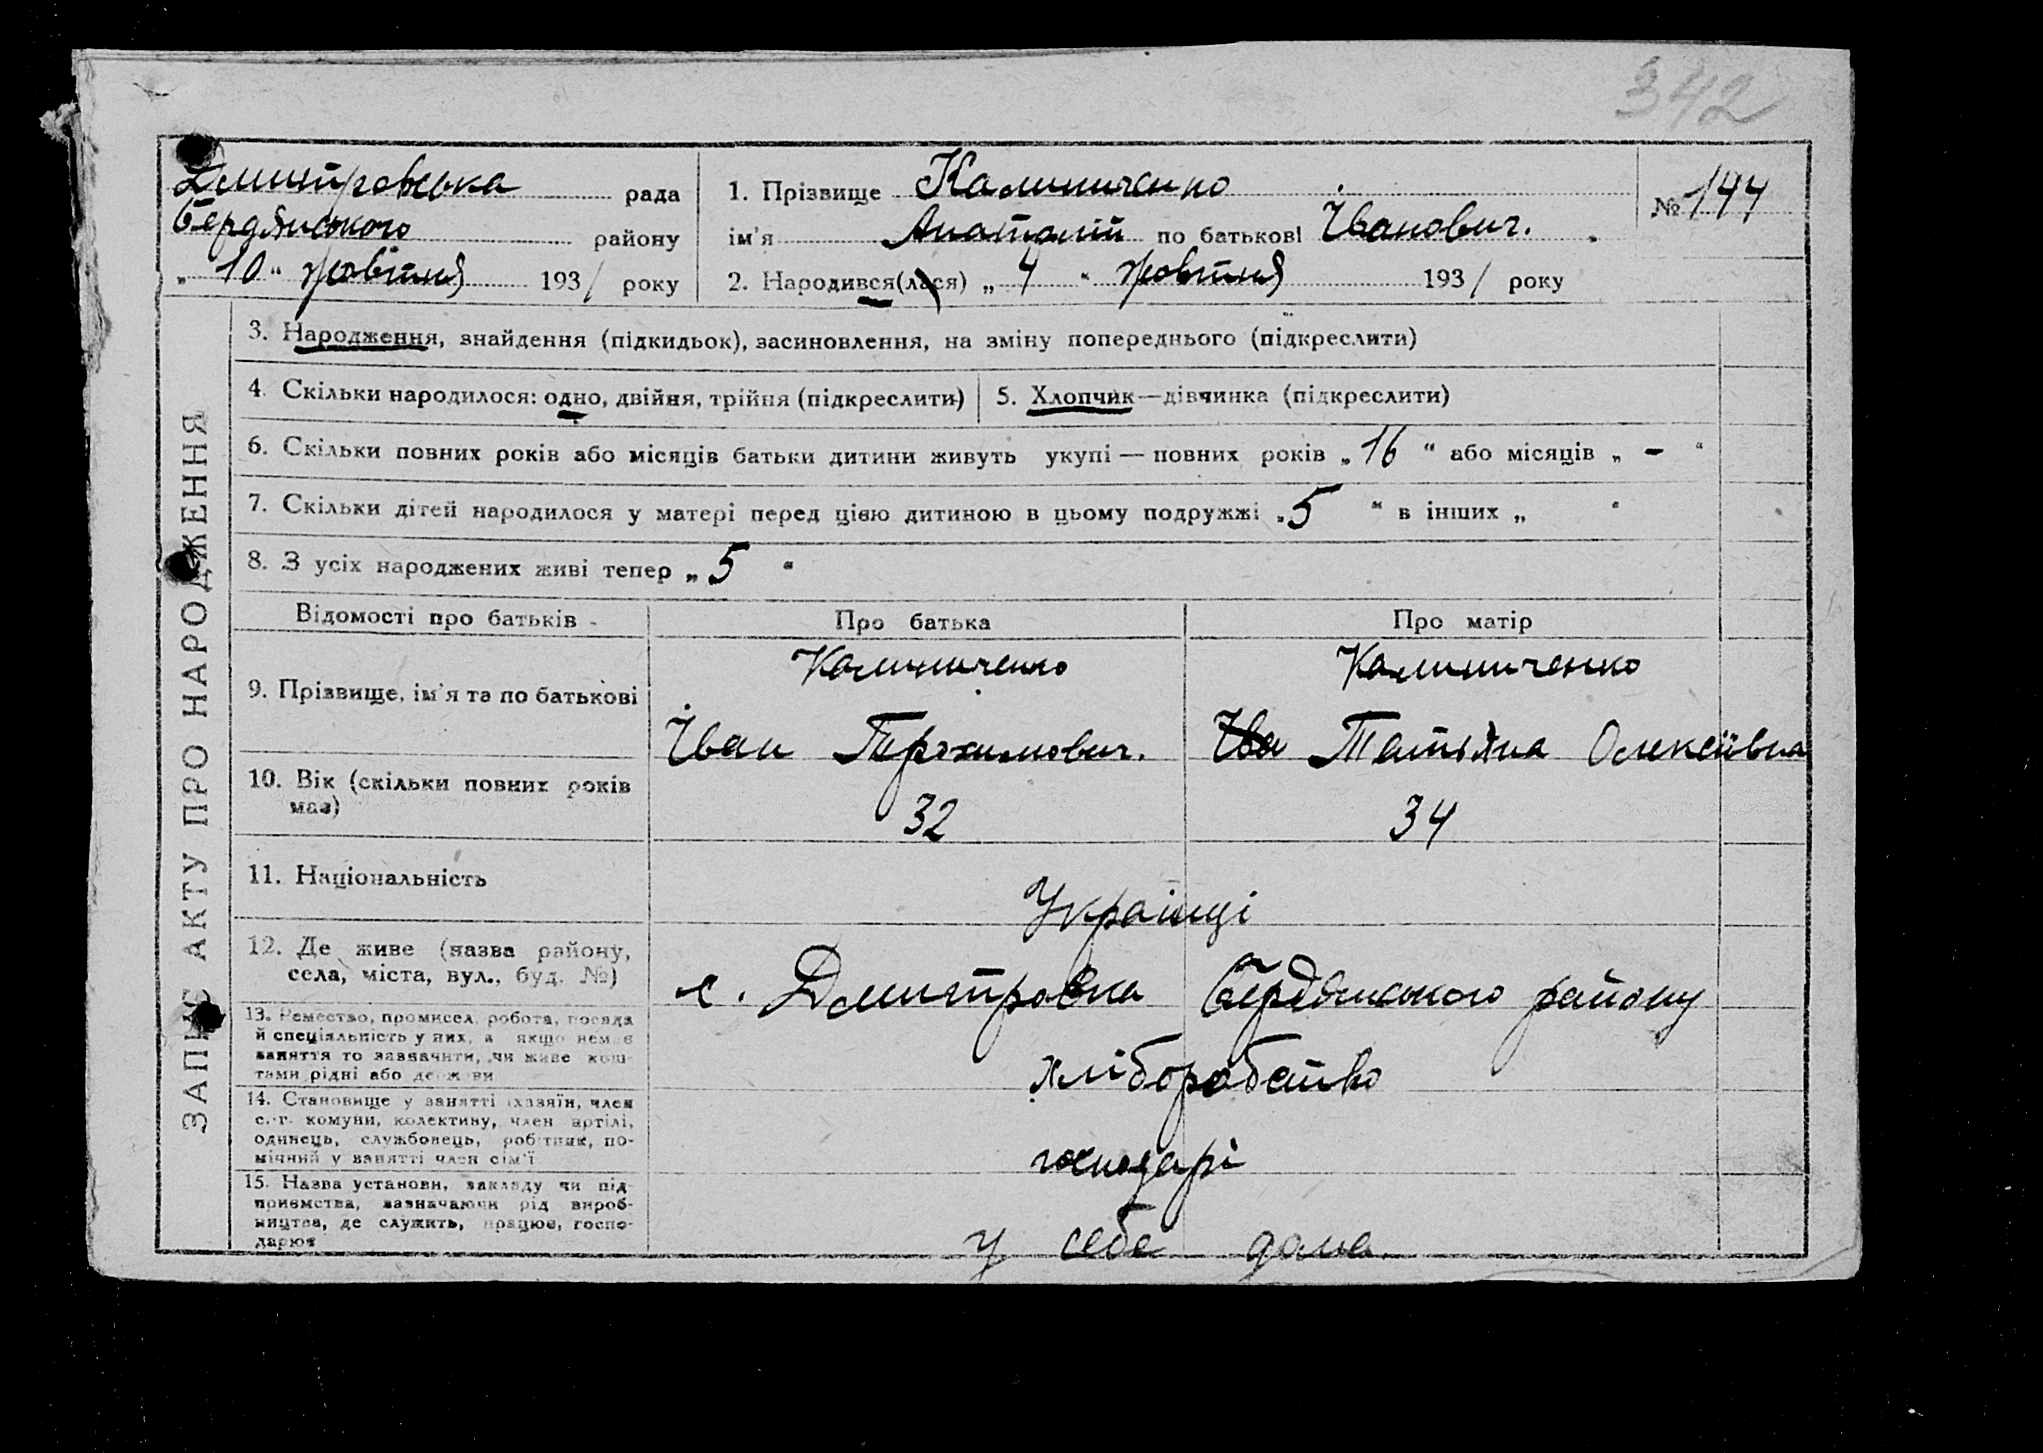 342
Дмитровська рада
Бердянського району
„ 10 “ жовтня 1931 року
1. Прізвище Калиниченко
ім'я Анатолій по батькові Іванович.
2. Народився(лася) „ 4 “ жовтня 1931 року
№ 144
ЗАПИС АКТУ ПРО НАРОДЖЕННЯ
3. Народження, знайдення (підкидьок), засиновлення, на зміну попереднього (підкреслити)
4. Скільки народилося: одно, двійня, трійня (підкреслити) 5. Хлопчик—дівчинка (підкреслити)
6. Скільки повних років або місяців батьки дитини живуть укупі — повних років „ 16 “ або місяців „ – “
7. Скільки дітей народилося у матері перед цією дитиною в цьому подружжі „ 5 “ в інших „ “
8. З усіх народжених живі тепер „ 5 “
Відомості про батьків Про батька Про матір
9. Прізвище, ім'я та по батькові
Калиниченко
Іван Трохимович.
Калиниченко
Іва Татьяна Олексіївна
10. Вік (скільки повних років
має)
32 34
11. Національність
Українці
12. Де живе (назва району,
села, міста, вул., буд. №)
с. Дмитровка Бердянського району
13. Ремество, промисел, робота, посада
й спеціяльність у них, а якщо немає
заняття то зазначити, чи живе кош-
тами рідні або держави
хліборобство
14. Становище у занятті (хазяїн, член
с.-г. комуни, колективу, член артілі,
одинець, службовець, робітник, по-
мічний у занятті член сім'ї
господарі
15. Назва установи, закладу чи під-
приємства, зазначаючи рід вироб-
ництва, де служить, працює, госпо-
дарює
у себе дома.